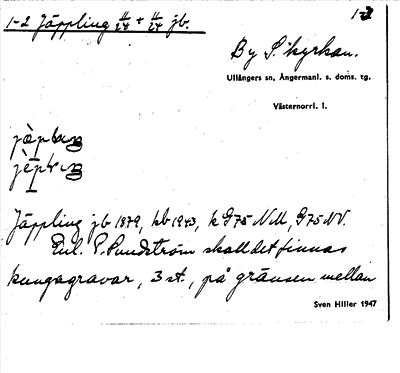 1-2 Jäppling 11/24 + 11/24 jb. 1-3
By S. kyrkan.
Ullångers sn, Ångermanl. s. doms. tg.
Västernorrl. l.
Jäppling jb 1879, hb 1943, k G75 NV.
Enl. P. Sundström skall det finnas
kungagravar, 3 st., på gränsen mellan
Sven Hiller 1947